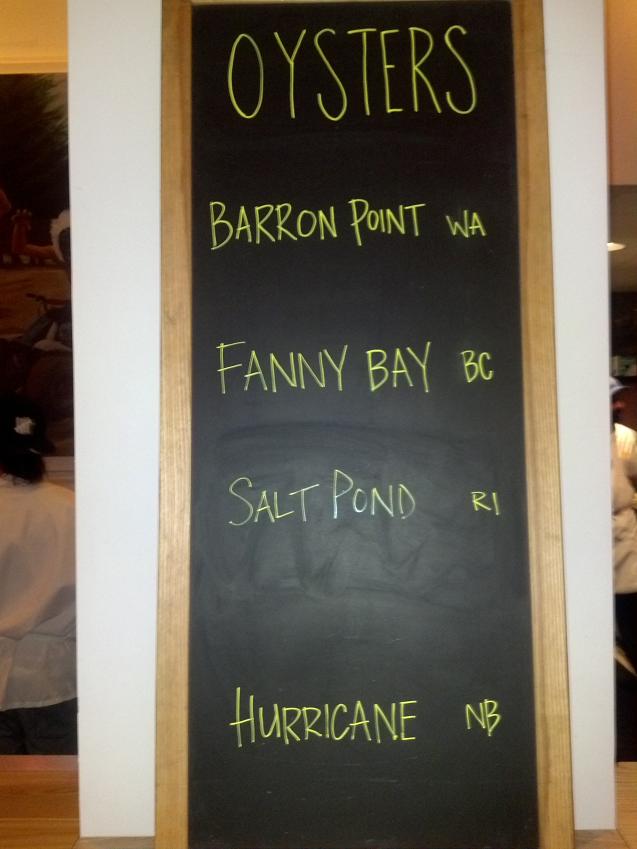 OYSTERS
BARRON POINT WA
FANNY BAY BC
SALT POND RI
HURRICANE NB